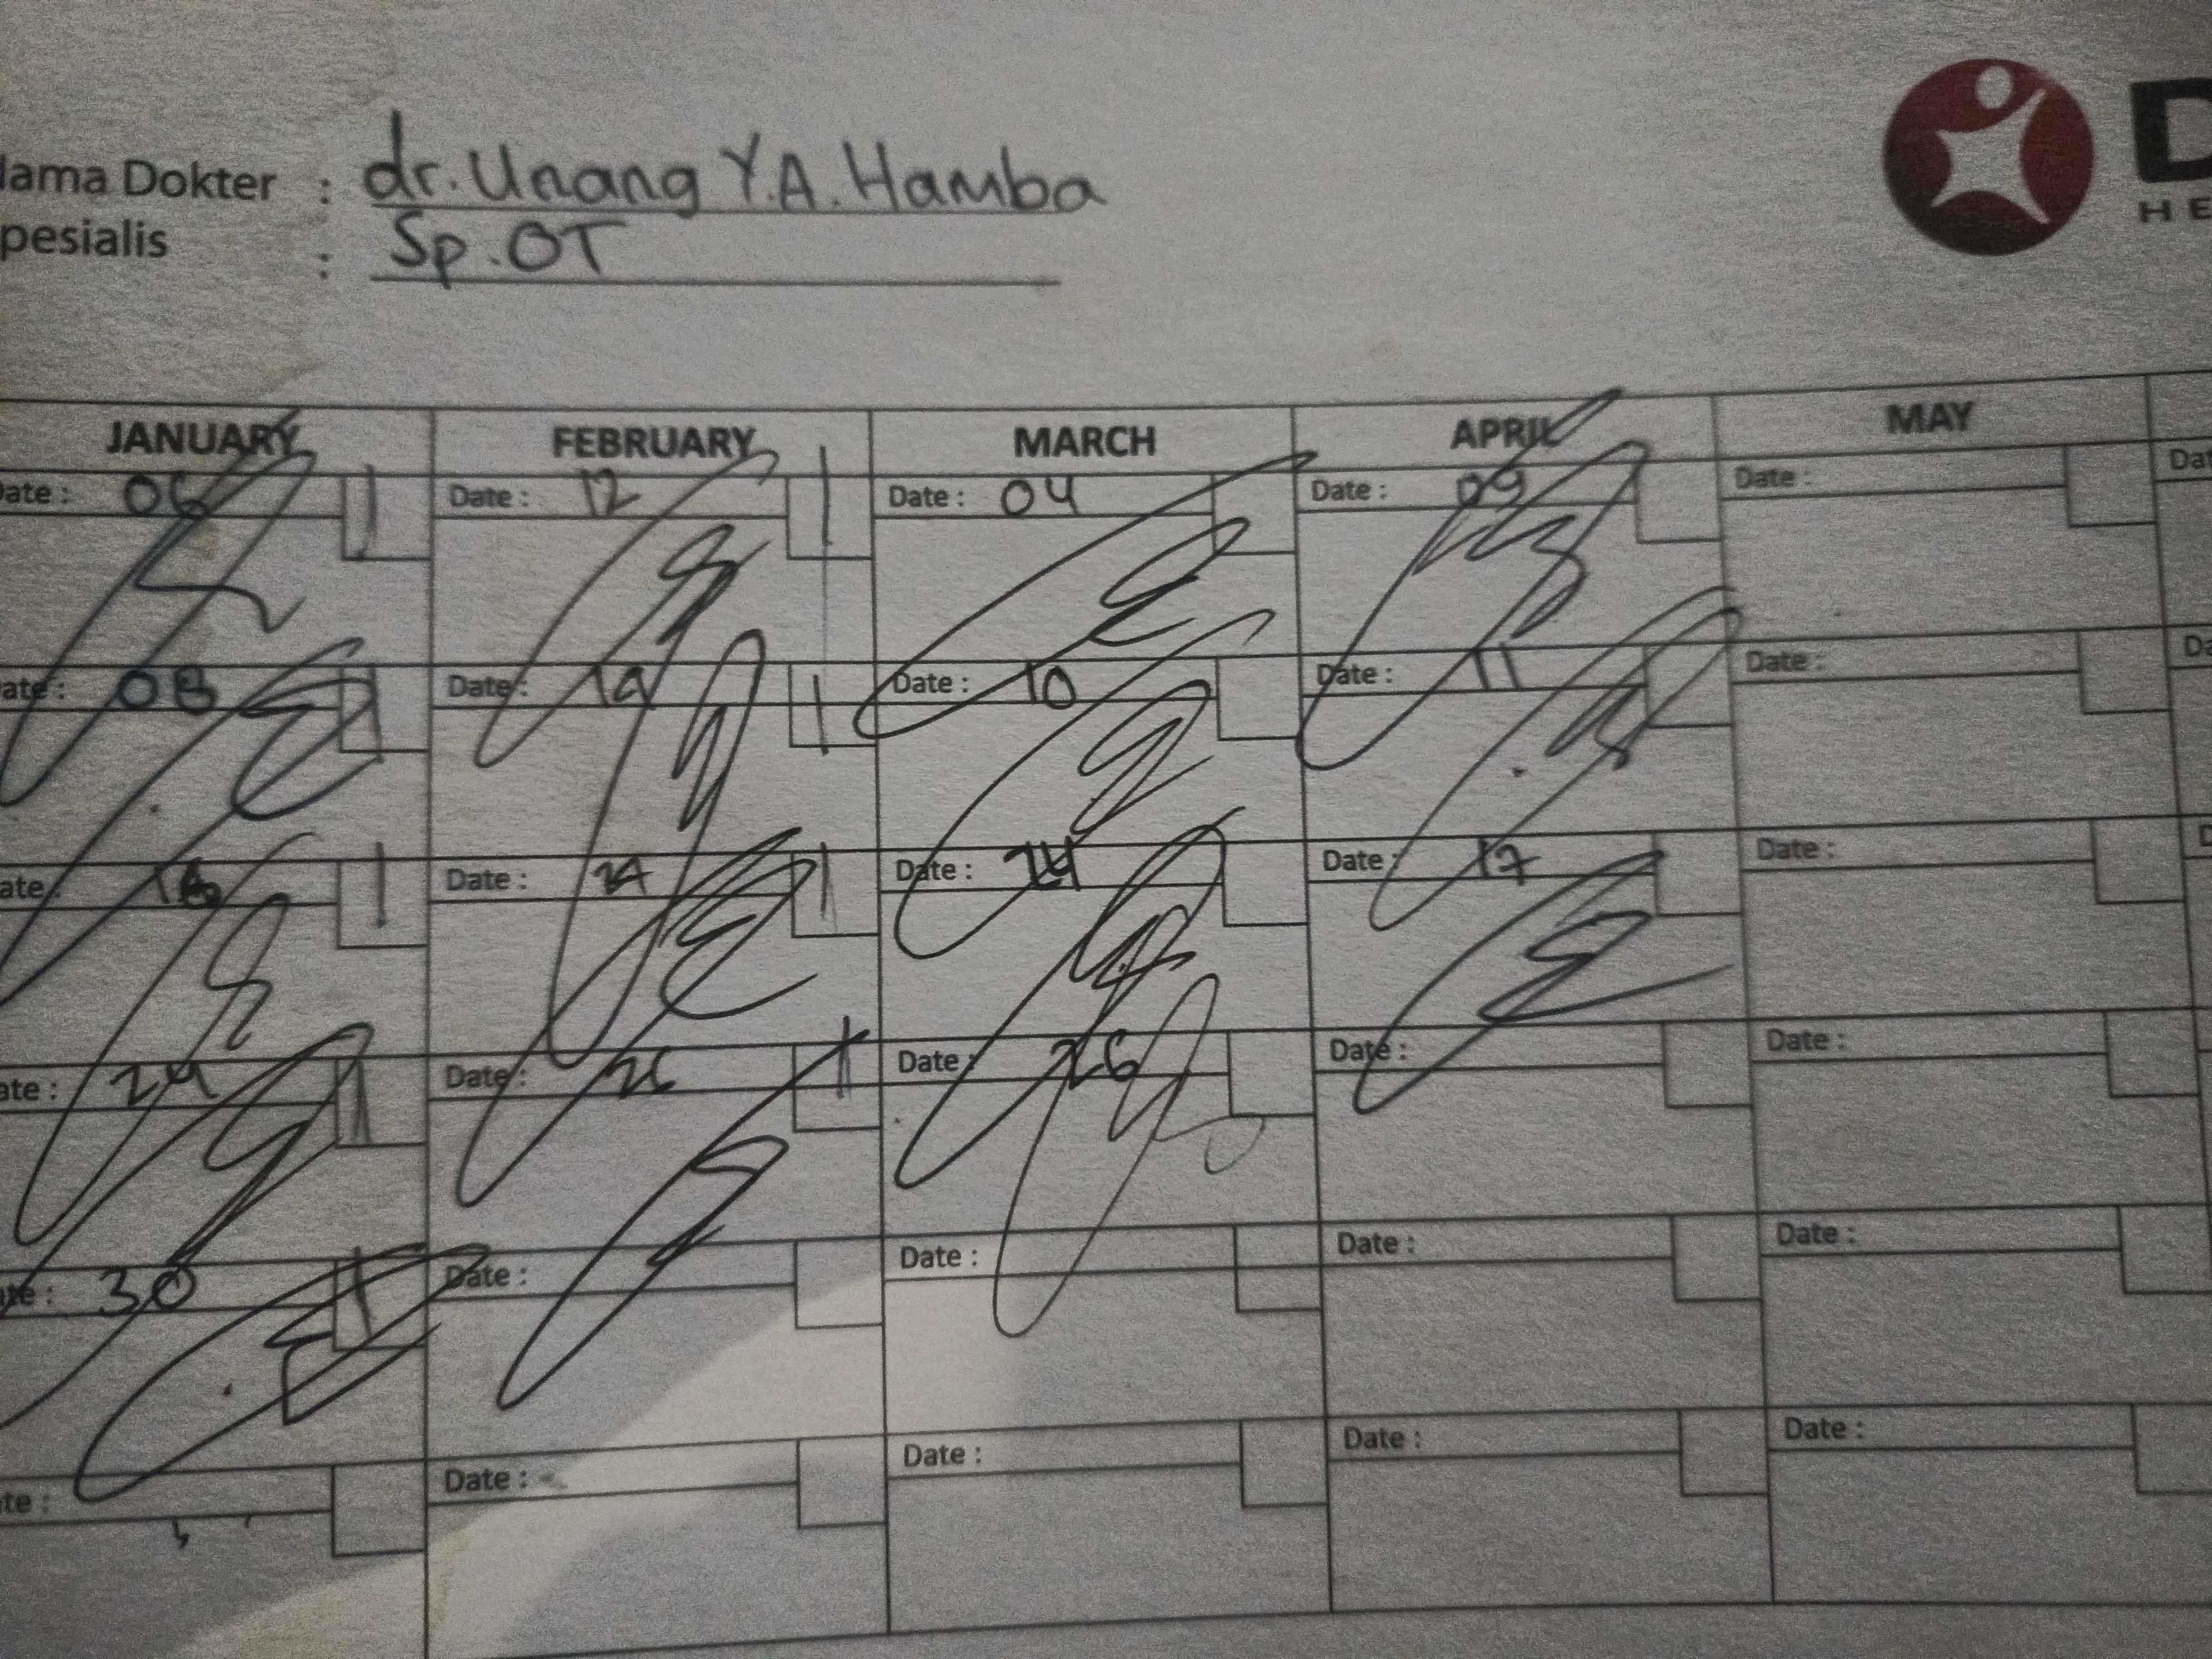 ama Dokter : dr. Unang Y.A. Hamba
pesialis : Sp.OT
D
HE
JANUARY FEBRUARY MARCH APRIL MAY
ate : 06 Date : 12 Date : 04 Date : 09 Date : Dat
ate : 08 Date : 19 Date : 10 Date : 11 Date : Da
ate : Date : Date : 24 Date : 17 Date : D
ate : 24 Date : 26 Date : 26 Date : Date :
te : 30 Date : Date : Date : Date :
te : Date : Date : Date : Date :